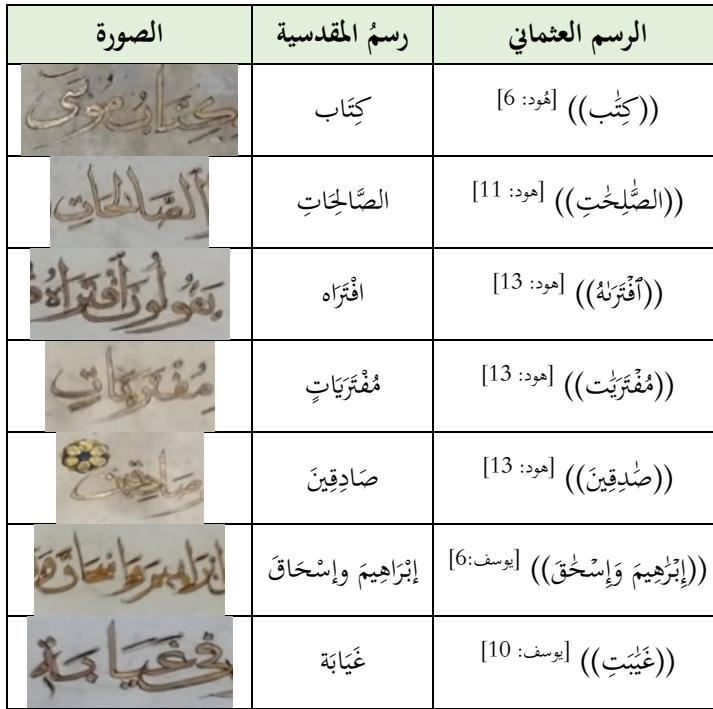 الرسم العثماني رسمُ المقدسية الصورة
((كِتَٰب)) [هُود: 6] كِتَاب كِتَابُ مُوسَى
((الصَّٰلِحَٰتِ)) [هود: 11] الصَّالِحَاتِ الصَّالِحَاتِ
((ٱفْتَرَىٰهُ)) [هود: 13] افْتَرَاه يَقُولُونَ افْتَرَاهُ
((مُفْتَرَيَٰت)) [هود: 13] مُفْتَرَيَاتٍ مُفْتَرَيَاتٍ
((صَٰدِقِينَ)) [هود: 13] صَادِقِينَ صَادِقِينَ
((إِبْرَٰهِيمَ وَإِسْحَٰقَ)) [يوسف:6] إبْرَاهِيمَ وإسْحَاقَ ابْرَاهِيمَ وَاسْحَاقَ
((غَيَٰبَتِ)) [يوسف: 10] غَيَابَة فِي غَيَابَةِ